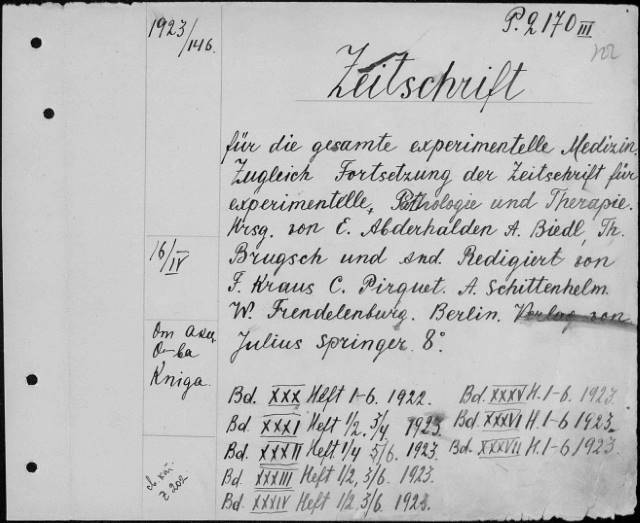 1923/146.
P. 2170 III
Zeitschrift
für die gesamte experimentelle Medizin.
Zugleich Fortsetzung der Zeitschrift für
experimentelle Pathologie und Therapie.
Hrsg. von E. Abderhalden A. Biedl, Th.
16/IV
Brugsch und and. Redigiert von
F. Kraus C. Pirquet. A. Schittenhelm.
W. Frendelenburg. Berlin. Verlag von
От акц.
О-ва
Kniga.
Julius Springer 8°.
Bd. XXX Heft 1-6. 1922.
Bd. XXXI Heft 1/2, 3/4 1923.
Bd. XXXII Heft 1/4 5/6. 1923.
Bd. XXXIII Heft 1/2, 3/6. 1923.
Bd. XXXIV Heft 1/2, 3/6. 1923.
Bd. XXXV H. 1-6. 1923.
Bd. XXXVI H. 1-6. 1923.
Bd. XXXVII H. 1-6 1923.
202